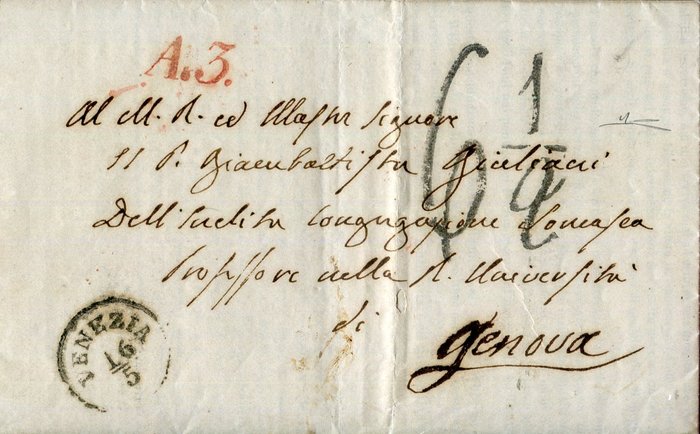 A. 3.
6 1/4
Al M. R. ed Illustr Signore
Il P. Giambattista Giuliani
Dell'inclita Congregazione Somasca
Professore nella R. Università
di
Genova
VENEZIA
16
/5